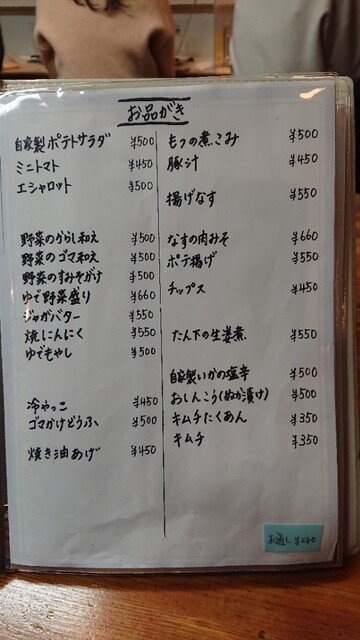 お品がき
自家製ポテトサラダ ¥500
ミニトマト ¥450
エシャロット ¥500
野菜のからし和え ¥500
野菜のゴマ和え ¥500
野菜のすみそがけ ¥500
ゆで野菜盛り ¥660
ジャがバター ¥550
焼にんにく ¥550
ゆでもやし ¥500
冷やっこ ¥450
ゴマかけどうふ ¥500
焼き油あげ ¥450
もつの煮こみ ¥500
豚汁 ¥450
揚げなす ¥550
なすの肉みそ ¥660
ポテ揚げ ¥550
チップス ¥450
たん下の生姜煮 ¥550
自家製いかの塩辛 ¥500
おしんこう(ぬか漬け) ¥500
キムチたくあん ¥350
キムチ ¥350
お通し